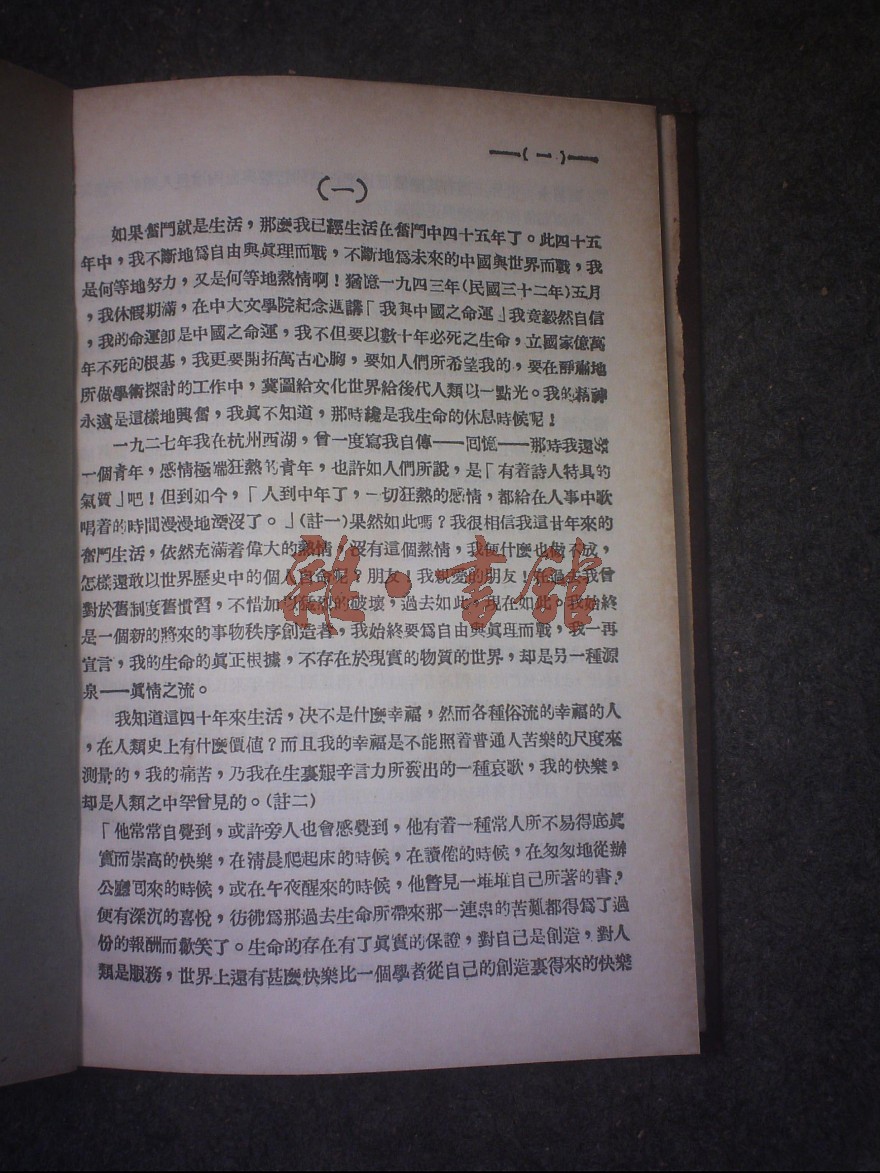 ——(一)——
(一)
如果奮鬥就是生活,那麼我已經生活在奮鬥中四十五年了。此四十五
年中,我不斷地爲自由與眞理而戰,不斷地爲未來的中國與世界而戰,我
是何等地努力,又是何等地熱情啊!猶憶一九四三年(民國三十二年)五月
,我休假期滿,在中大文學院紀念週講「我與中國之命運」我竟毅然自信
,我的命運卽是中國之命運,我不但要以數十年必死之生命,立國家億萬
年不死的根基,我更要開拓萬古心胸,要如人們所希望我的,要在靜肅地
所做學術探討的工作中,冀圖給文化世界給後代人類以一點光。我的精神
永遠是這樣地興奮,我眞不知道,那時纔是我生命的休息時候呢!
一九二七年我在杭州西湖,曾一度寫我自傳——回憶——那時我還
一個青年,感情極端狂熱的青年,也許如人們所說,是「有着詩人特具的
氣質」吧!但到如今,「人到中年了,一切狂熱的感情,都給在人事中歌
唱着的時間漫漫地湮沒了。」(註一)果然如此嗎?我很相信我這廿年來的
奮鬥生活,依然充滿着偉大的熱情,沒有這個熱情,我便什麼也做不成,
怎樣還敢以世界歷史中的個人自命呢?朋友!我親愛的朋友!在過去我曾
對於舊制度舊慣習,不惜加以的破壞,過去如此,現在如此。我始終
是一個新的將來的事物秩序創造者,我始終要爲自由與眞理而戰,我一再
宣言,我的生命的眞正根據,不存在於現實的物質的世界,却是另一種源
泉——眞情之流。
我知道這四十年來生活,决不是什麼幸福,然而各種俗流的幸福的人
,在人類史上有什麼價值?而且我的幸福是不能照着普通人苦樂的尺度來
測量的,我的痛苦,乃我在生裏艱辛言力所發出的一種哀歌,我的快樂,
却是人類之中罕曾見的。(註二)
「他常常自覺到,或許旁人也會感覺到,他有着一種常人所不易得底眞
實而崇高的快樂,在清晨爬起床的時候,在讀倦的時候,在匆匆地從辦
公廳囘來的時候,或在午夜醒來的時候,他瞥見一堆堆自己所著的書,
便有深沉的喜悅,彷彿爲那過去生命所帶來那一連串的苦難都得爲了過
份的報酬而歡笑了。生命的存在有了眞實的保證,對自己是創造,對人
類是服務,世界上還有甚麼快樂比一個學者從自己的創造裏得來的快樂
雜·書館